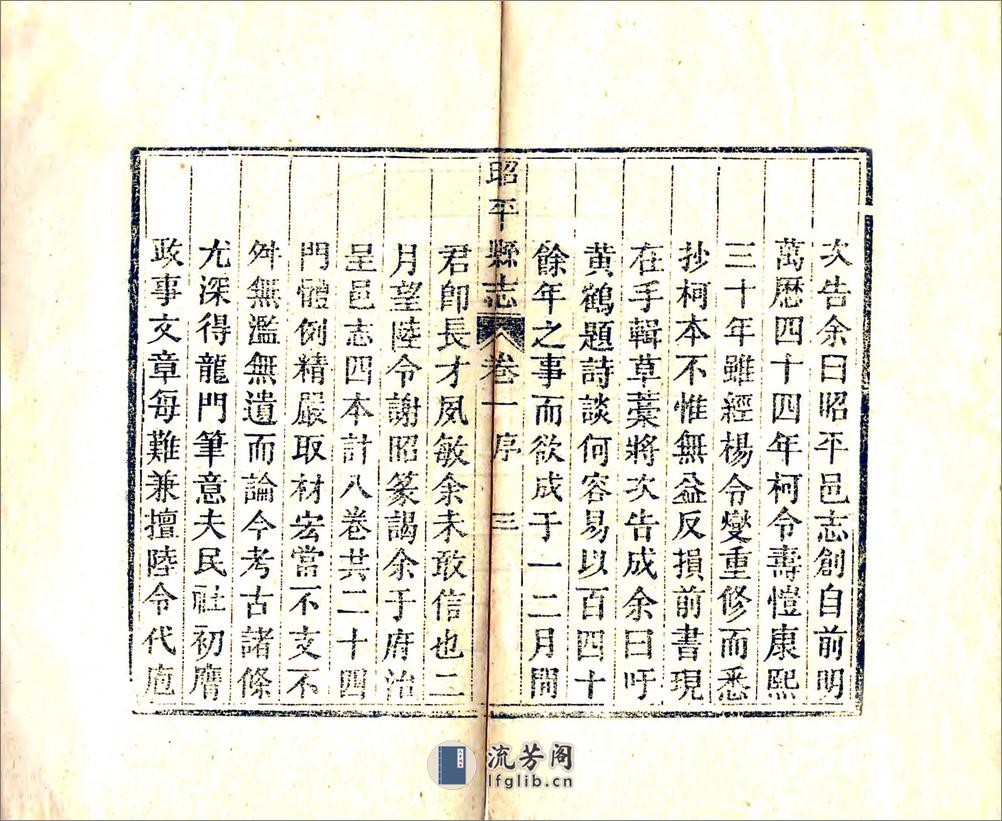 次告余曰昭平邑志創自前明
萬曆四十四年柯令壽愷康熙
三十年雖經楊令燮重修而悉
抄柯本不惟無益反損前書現
在手輯草藁將次告成余曰吁
黃鶴題詩談何容易以百四十
餘年之事而欲成于一二月間
昭平縣志 卷一 序 三
君即長才夙敏余未敢信也二
月望陸令謝昭篆謁余于府治
呈邑志四本計八卷共二十四
門體例精嚴取材宏當不支不
舛無濫無遺而論今考古諸條
尤深得龍門筆意夫民社初膺
政事文章每難兼擅陸令代庖
流芳阁
lfglib.cn